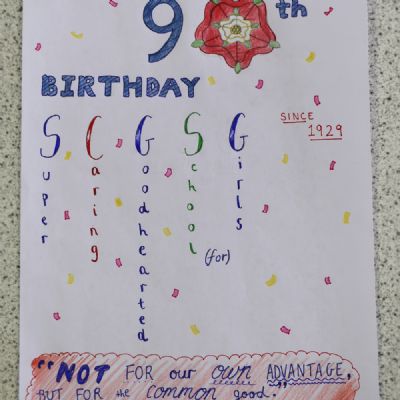 9 th
BIRTHDAY
SINCE
1929
Super
Caring
Goodhearted
School
(for)
Girls
"NOT FOR our own ADVANTAGE,
BUT FOR the common good."